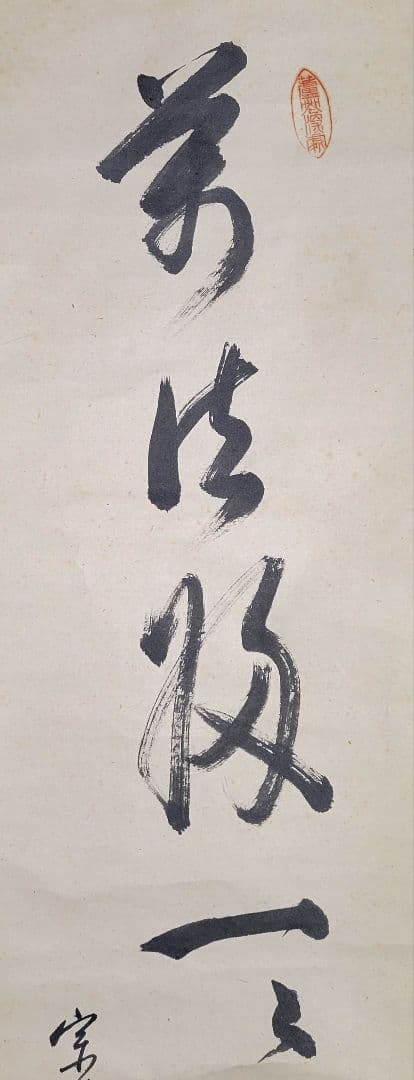 萬法歸一〻
宗